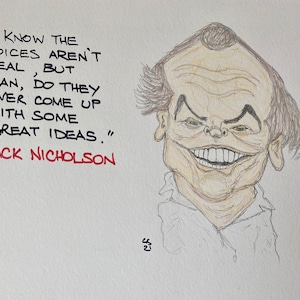 KNOW THE
OICES AREN'T
EAL, BUT
AN, DO THEY
VER COME UP
ITH SOME
GREAT IDEAS."
CK NICHOLSON